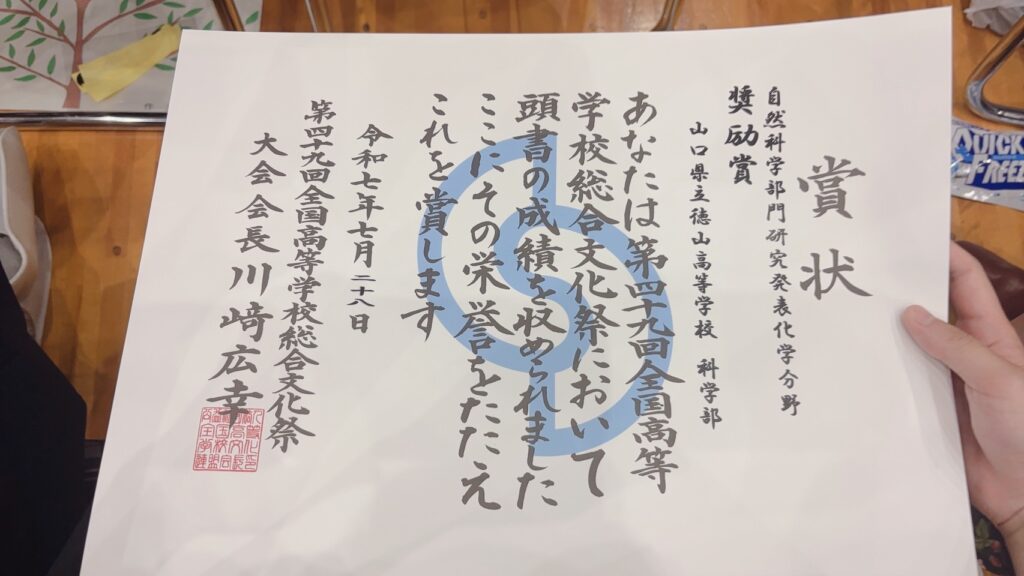 賞状
自然科学部門研究発表化学分野
奨励賞
山口県立徳山高等学校 科学部
あなたは第四十九回全国高等
学校総合文化祭において
頭書の成績を収められました
ここにその栄誉をたたえ
これを賞します
令和七年七月二十八日
第四十九回全国高等学校総合文化祭
大会会長川﨑広幸
QUICK
FREEZ